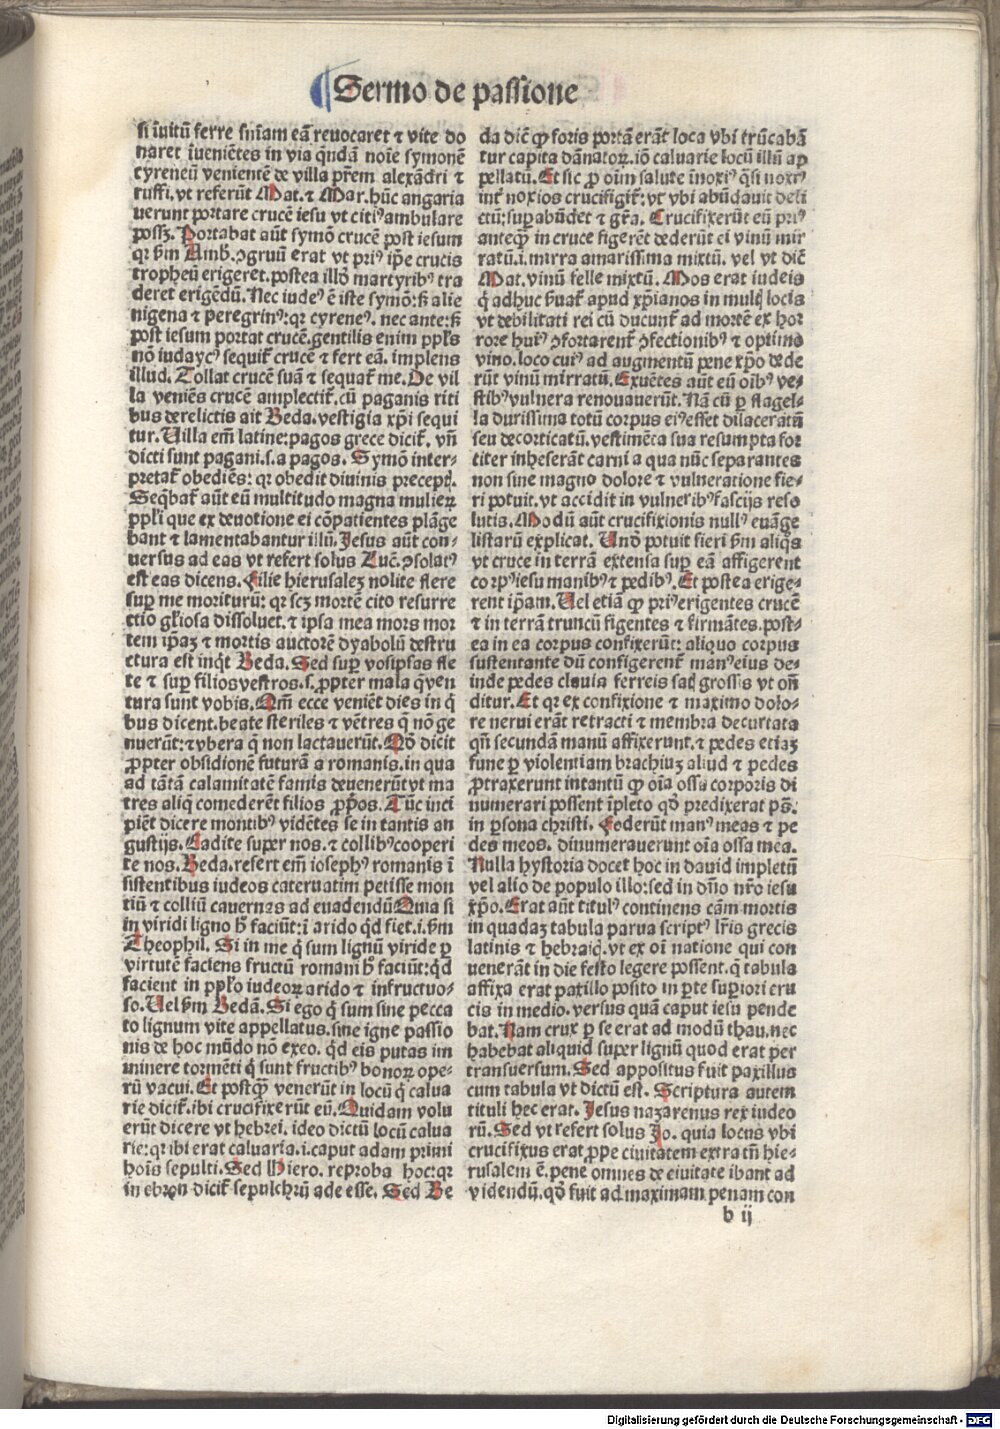 Sermo de passione
si ĩuitũ ferre snĩam eã reuocaret ⁊ vite do
naret ĩueniẽtes in via qndã noĩe symonẽ
cyreneũ venientẽ de villa pr̃em alexãdri ⁊
ruffi. vt referũt Mat. ⁊ Mar. hũc angaria
uerunt portare crucẽ iesu vt citiꝰ ambulare
possꝫ. Portabat aũt symõ crucẽ post iesum
qꝛ ẜm Amb. ꝯgruũ erat vt priꝰ ip̃e crucis
tropheũ erigeret. postea illđ martyribꝰ tra
deret erigẽdũ. Nec iudeꝰ ẽ iste symõ: ẜ alie
nigena ⁊ peregrinꝰ: qꝛ cyreneꝰ. nec ante: ẜ
post iesum portat crucẽ. gentilis enim ppl̃s
nõ iudaycꝰ sequit̃ crucẽ ⁊ fert eã. implens
illud. Tollat crucẽ suã ⁊ sequat̃ me. De vil
la veniẽs crucẽ amplectit̃. cũ paganis riti
bus derelictis ait Beda. vestigia xp̃i sequi
tur. Uilla em̃ latine: pagos grece dicit̃. vñ
dicti sunt pagani. s. a pagos. Symõ inter⸗
pretat̃ obediẽs: qꝛ obedit diuinis precept̃.
Seqͣbat̃ aũt eũ multitudo magna mulieꝝ
ppl̃i que ex deuotione ei cõpatientes plãge
bant ⁊ lamentabantur illũ. Jesus aũt con⸗
uersus ad eas vt refert solus Luc̃. ꝯsolatꝰ
est eas dicens. Filie hierusalez nolite flere
suꝑ me moriturũ: qꝛ scꝫ mortẽ cito resurre
ctio gl̃iosa dissoluet. ⁊ ipsa mea mors mor
tem ip̃aꝫ ⁊ mortis auctorẽ dyabolũ destru
ctura est inqͥt Beda. Sed suꝑ vosipsas fle
te ⁊ suꝑ filios vestros. s. ꝓpter mala q̃ ven
tura sunt vobis. Qm̃ ecce veniẽt dies in qͥ
bus dicent. beate steriles ⁊ vẽtres q̃ nõ ge
nuerũt: ⁊ vbera q̃ non lactauerũt. Hõ dicit
ꝓpter obsidionẽ futurã a romanis. in qua
ad tãtã calamitatẽ famis deuenerũt vt ma
tres aliq̃ comederẽt filios ꝓp̃os. Tũc inci
piẽt dicere montibꝰ vidẽtes se in tantis an
gustijs. Cadite super nos. ⁊ collibꝰ cooperi
te nos. Beda. refert em̃ iosephꝰ romanis ĩ
sistentibus iudeos cateruatim petisse mon
tiũ ⁊ colliũ cauernas ad euadendũ Quia si
in viridi ligno h̃ faciũt: ĩ arido qͥd fiet. i. ẜm
Theophil. Si in me qͥ sum lignũ viride ꝑ
virtutẽ faciens fructũ romani h̃ faciũt: qͥd
facient in ppl̃o iudeoꝝ arido ⁊ infructuo⸗
so. Uel ẜm Bedã. Si ego qͥ sum sine pecca
to lignum vite appellatus. sine igne passio
nis de hoc mũdo nõ exeo. qͥd eis putas im
minere tormẽti qͥ sunt fructibꝰ bonoꝝ ope⸗
rũ vacui. Et postqͣꝫ venerũt in locũ qͥ calua
rie dicit̃. ibi crucifixerũt eũ. Quidam volu
erũt dicere vt hebrei. ideo dictũ locũ calua
rie: qꝛ ibi erat caluaria. i. caput adam primi
hoĩs sepulti. Sed Hiero. reproba hoc: qꝛ
in ebron dicit̃ sepulchrũ ade esse. Sed Be
da dic̃ ꝙ foris portã erãt loca vbi trũcabã
tur capita dãnatoꝝ. iõ caluarie locũ illũ ap
pellatũ. Et sic ꝓ oĩm salute ĩnoxiꝰ q̃si noxiꝰ
int̃ noxios crucifigit̃: vt vbi abũdauit deli
ctũ: suꝑabũdet ⁊ gr̃a. Crucifixerũt eũ priꝰ
anteqͣꝫ in cruce figerẽt dederũt ei vinũ mir
ratũ. i. mirra amarissima mixtũ. vel vt dic̃
Mat. vinũ felle mixtũ. Mos erat iudeis
qͥ adhuc ẜuat̃ apud xp̃ianos in mult̃ locis
vt debilitati rei cũ ducunt̃ ad mortẽ ex hor
rore huiꝰ ꝯfortarent̃ ꝯfectionibꝰ ⁊ optimo
vino. loco cuiꝰ ad augmentũ pene xp̃o dede
rũt vinũ mirratũ. Exuẽtes aũt eũ oĩbꝰ ve⸗
stibꝰ vulnera renouauerũt. Nã cũ ꝑ flagel⸗
la durissima totũ corpus eiꝰ esset dilaceratũ
seu decorticatũ. vestimẽta sua resumpta for
titer inheserãt carni a qua nũc separantes
non sine magno dolore ⁊ vulneratione fie⸗
ri potuit. vt accidit in vulneribꝰ fascijs reso
lutis. Modũ aũt crucifixionis nullꝰ euãge
listarũ explicat. Unđ potuit fieri ẜm aliqͦs
vt cruce in terrã extensa suꝑ eã affigerent
corpꝰ iesu manibꝰ ⁊ pedibꝰ. Et postea erige⸗
rent ip̃am. Uel etiã ꝙ priꝰ erigentes crucẽ
⁊ in terrã truncũ figentes ⁊ firmãtes. post⸗
ea in ea corpus confixerũt: aliquo corpus
sustentante dũ configerent̃ manꝰ eius de⸗
inde pedes clauis ferreis sat̃ grossis vt oñ
ditur. Et qꝛ ex confixione ⁊ maximo dolo⸗
re nerui erãt retracti ⁊ membra decurtata
qñ secundã manũ affixerunt. ⁊ pedes etiaꝫ
fune ꝑ violentiam brachiuꝫ aliud ⁊ pedes
ꝓtraxerunt intantũ ꝙ oĩa ossa corporis di
numerari possent ĩpleto qđ predixerat ps̃.
in ꝑsona christi. Foderũt manꝰ meas ⁊ pe
des meos. dinumerauerunt oĩa ossa mea.
Nulla hystoria docet hoc in dauid impletũ
vel alio de populo illo: sed in dñio nr̃o iesu
xp̃o. Erat aũt titulꝰ continens cãm mortis
in quadaꝫ tabula parua scriptꝰ lr̃is grecis
latinis ⁊ hebraic̃. vt ex oĩ natione qui con
uenerãt in die festo legere possent. q̃ tabula
affixa erat paxillo posito in ꝑte superiori cru
cis in medio. versus quã caput iesu pende
bat. Nam crux ꝑ se erat ad modũ thau. nec
habebat aliquid super lignũ quod erat per
transuersum. Sed appositus fuit paxillus
cum tabula vt dictũ est. Scriptura autem
tituli hec erat. Jesus nazarenus rex iudeo
rũ. Sed vt refert solus Jo. quia locus vbi
crucifixus erat ꝓpe ciuitatem extra tñ hie⸗
rusalem ẽ. pene omnes de ciuitate ibant ad
videndũ. qđ fuit ad maximam penam con
b ij
Digitalisierung gefördert durch die Deutsche Forschungsgemeinschaft - DFG